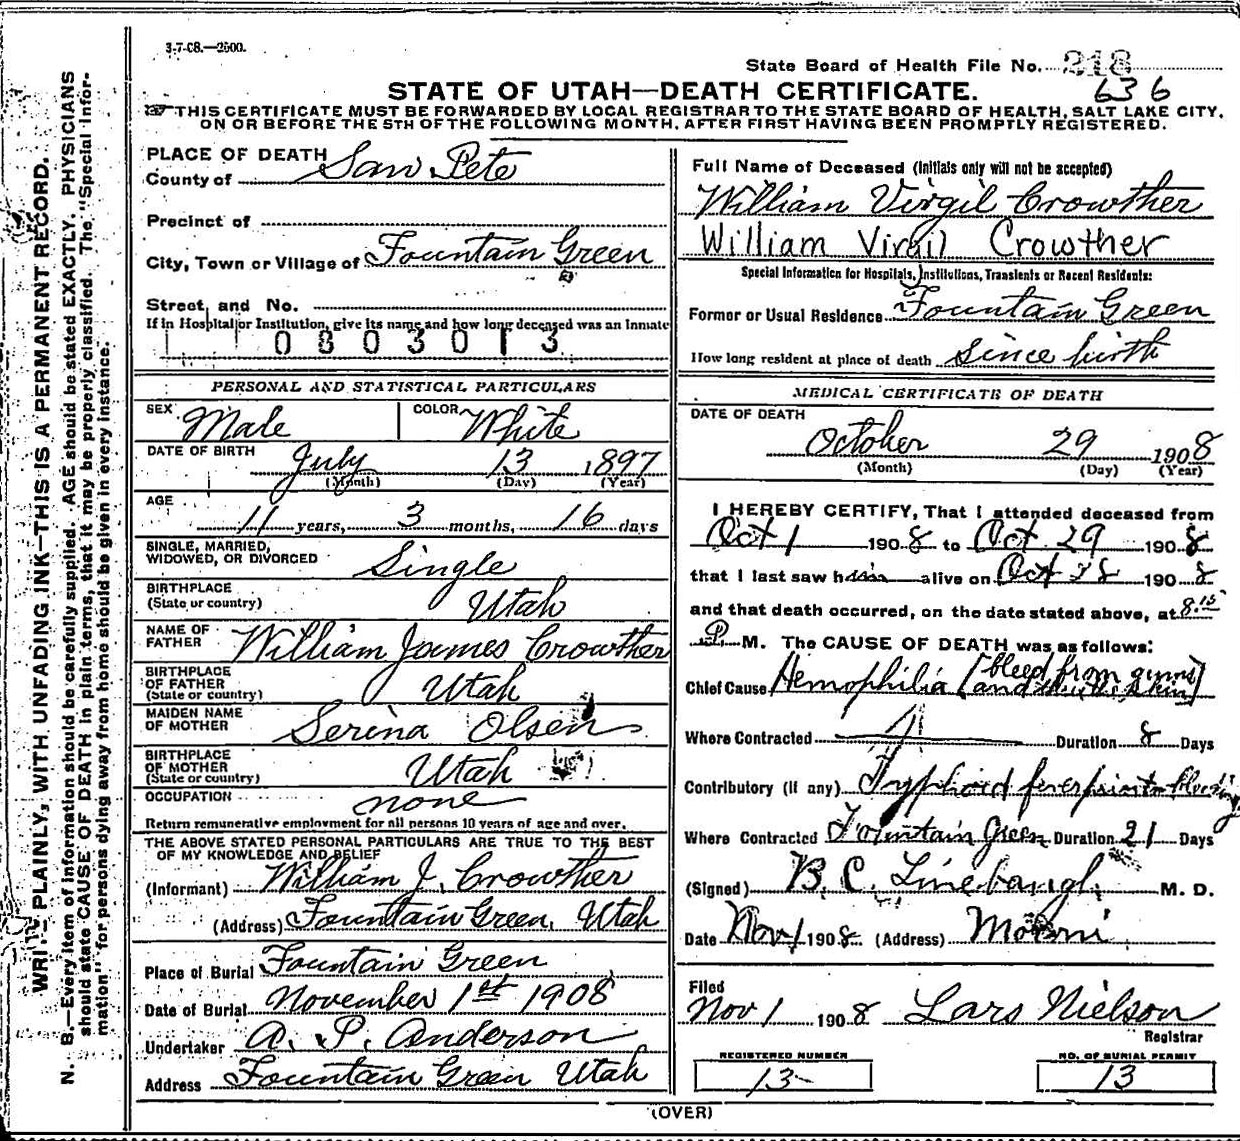 3-7-08.—2500.
State Board of Health File No. 218
636
STATE OF UTAH—DEATH CERTIFICATE.
THIS CERTIFICATE MUST BE FORWARDED BY LOCAL REGISTRAR TO THE STATE BOARD OF HEALTH, SALT LAKE CITY,
ON OR BEFORE THE 5TH OF THE FOLLOWING MONTH, AFTER FIRST HAVING BEEN PROMPTLY REGISTERED.
WRITE PLAINLY, WITH UNFADING INK—THIS IS A PERMANENT RECORD.
N. B.—Every item of information should be carefully supplied. AGE should be stated EXACTLY. PHYSICIANS
should state CAUSE OF DEATH in plain terms, that it may be properly classified. The "Special Infor-
mation" for persons dying away from home should be given in every instance.
PLACE OF DEATH
County of San Pete
Precinct of
City, Town or Village of Fountain Green
Street, and No.
If in Hospital or Institution, give its name and how long deceased was an Inmate
0803013
PERSONAL AND STATISTICAL PARTICULARS
SEX Male COLOR White
DATE OF BIRTH July 13 1897
(Month) (Day) (Year)
AGE 11 years, 3 months, 16 days
SINGLE, MARRIED,
WIDOWED, OR DIVORCED Single
BIRTHPLACE
(State or country) Utah
NAME OF
FATHER William James Crowther
BIRTHPLACE
OF FATHER
(State or country) Utah
MAIDEN NAME
OF MOTHER Serina Olsen
BIRTHPLACE
OF MOTHER
(State or country) Utah
OCCUPATION none
Return remunerative employment for all persons 10 years of age and over.
THE ABOVE STATED PERSONAL PARTICULARS ARE TRUE TO THE BEST
OF MY KNOWLEDGE AND BELIEF
(Informant) William J. Crowther
(Address) Fountain Green, Utah
Place of Burial Fountain Green
Date of Burial November 1st 1908
Undertaker A. P. Anderson
Address Fountain Green Utah
Full Name of Deceased (Initials only will not be accepted)
William Virgil Crowther
William Virgil Crowther
Special Information for Hospitals, Institutions, Transients or Recent Residents:
Former or Usual Residence Fountain Green
How long resident at place of death Since birth
MEDICAL CERTIFICATE OF DEATH
DATE OF DEATH
October 29 1908
(Month) (Day) (Year)
I HEREBY CERTIFY, That I attended deceased from
Oct 1 1908 to Oct 29 1908
that I last saw him alive on Oct 28 1908
and that death occurred, on the date stated above, at 8.15
P. M. The CAUSE OF DEATH was as follows:
Chief Cause Hemophilia (bleed from gums
and skin)
Where Contracted Duration 8 Days
Contributory (if any) Typhoid fever prior to bleeding
Where Contracted Fountain Green Duration 21 Days
(Signed) B. C. Linebaugh M. D.
Date Nov 1 1908 (Address) Moroni
Filed
Nov 1 1908 Lars Nielson
Registrar
REGISTERED NUMBER
13
NO. OF BURIAL PERMIT
13
(OVER)